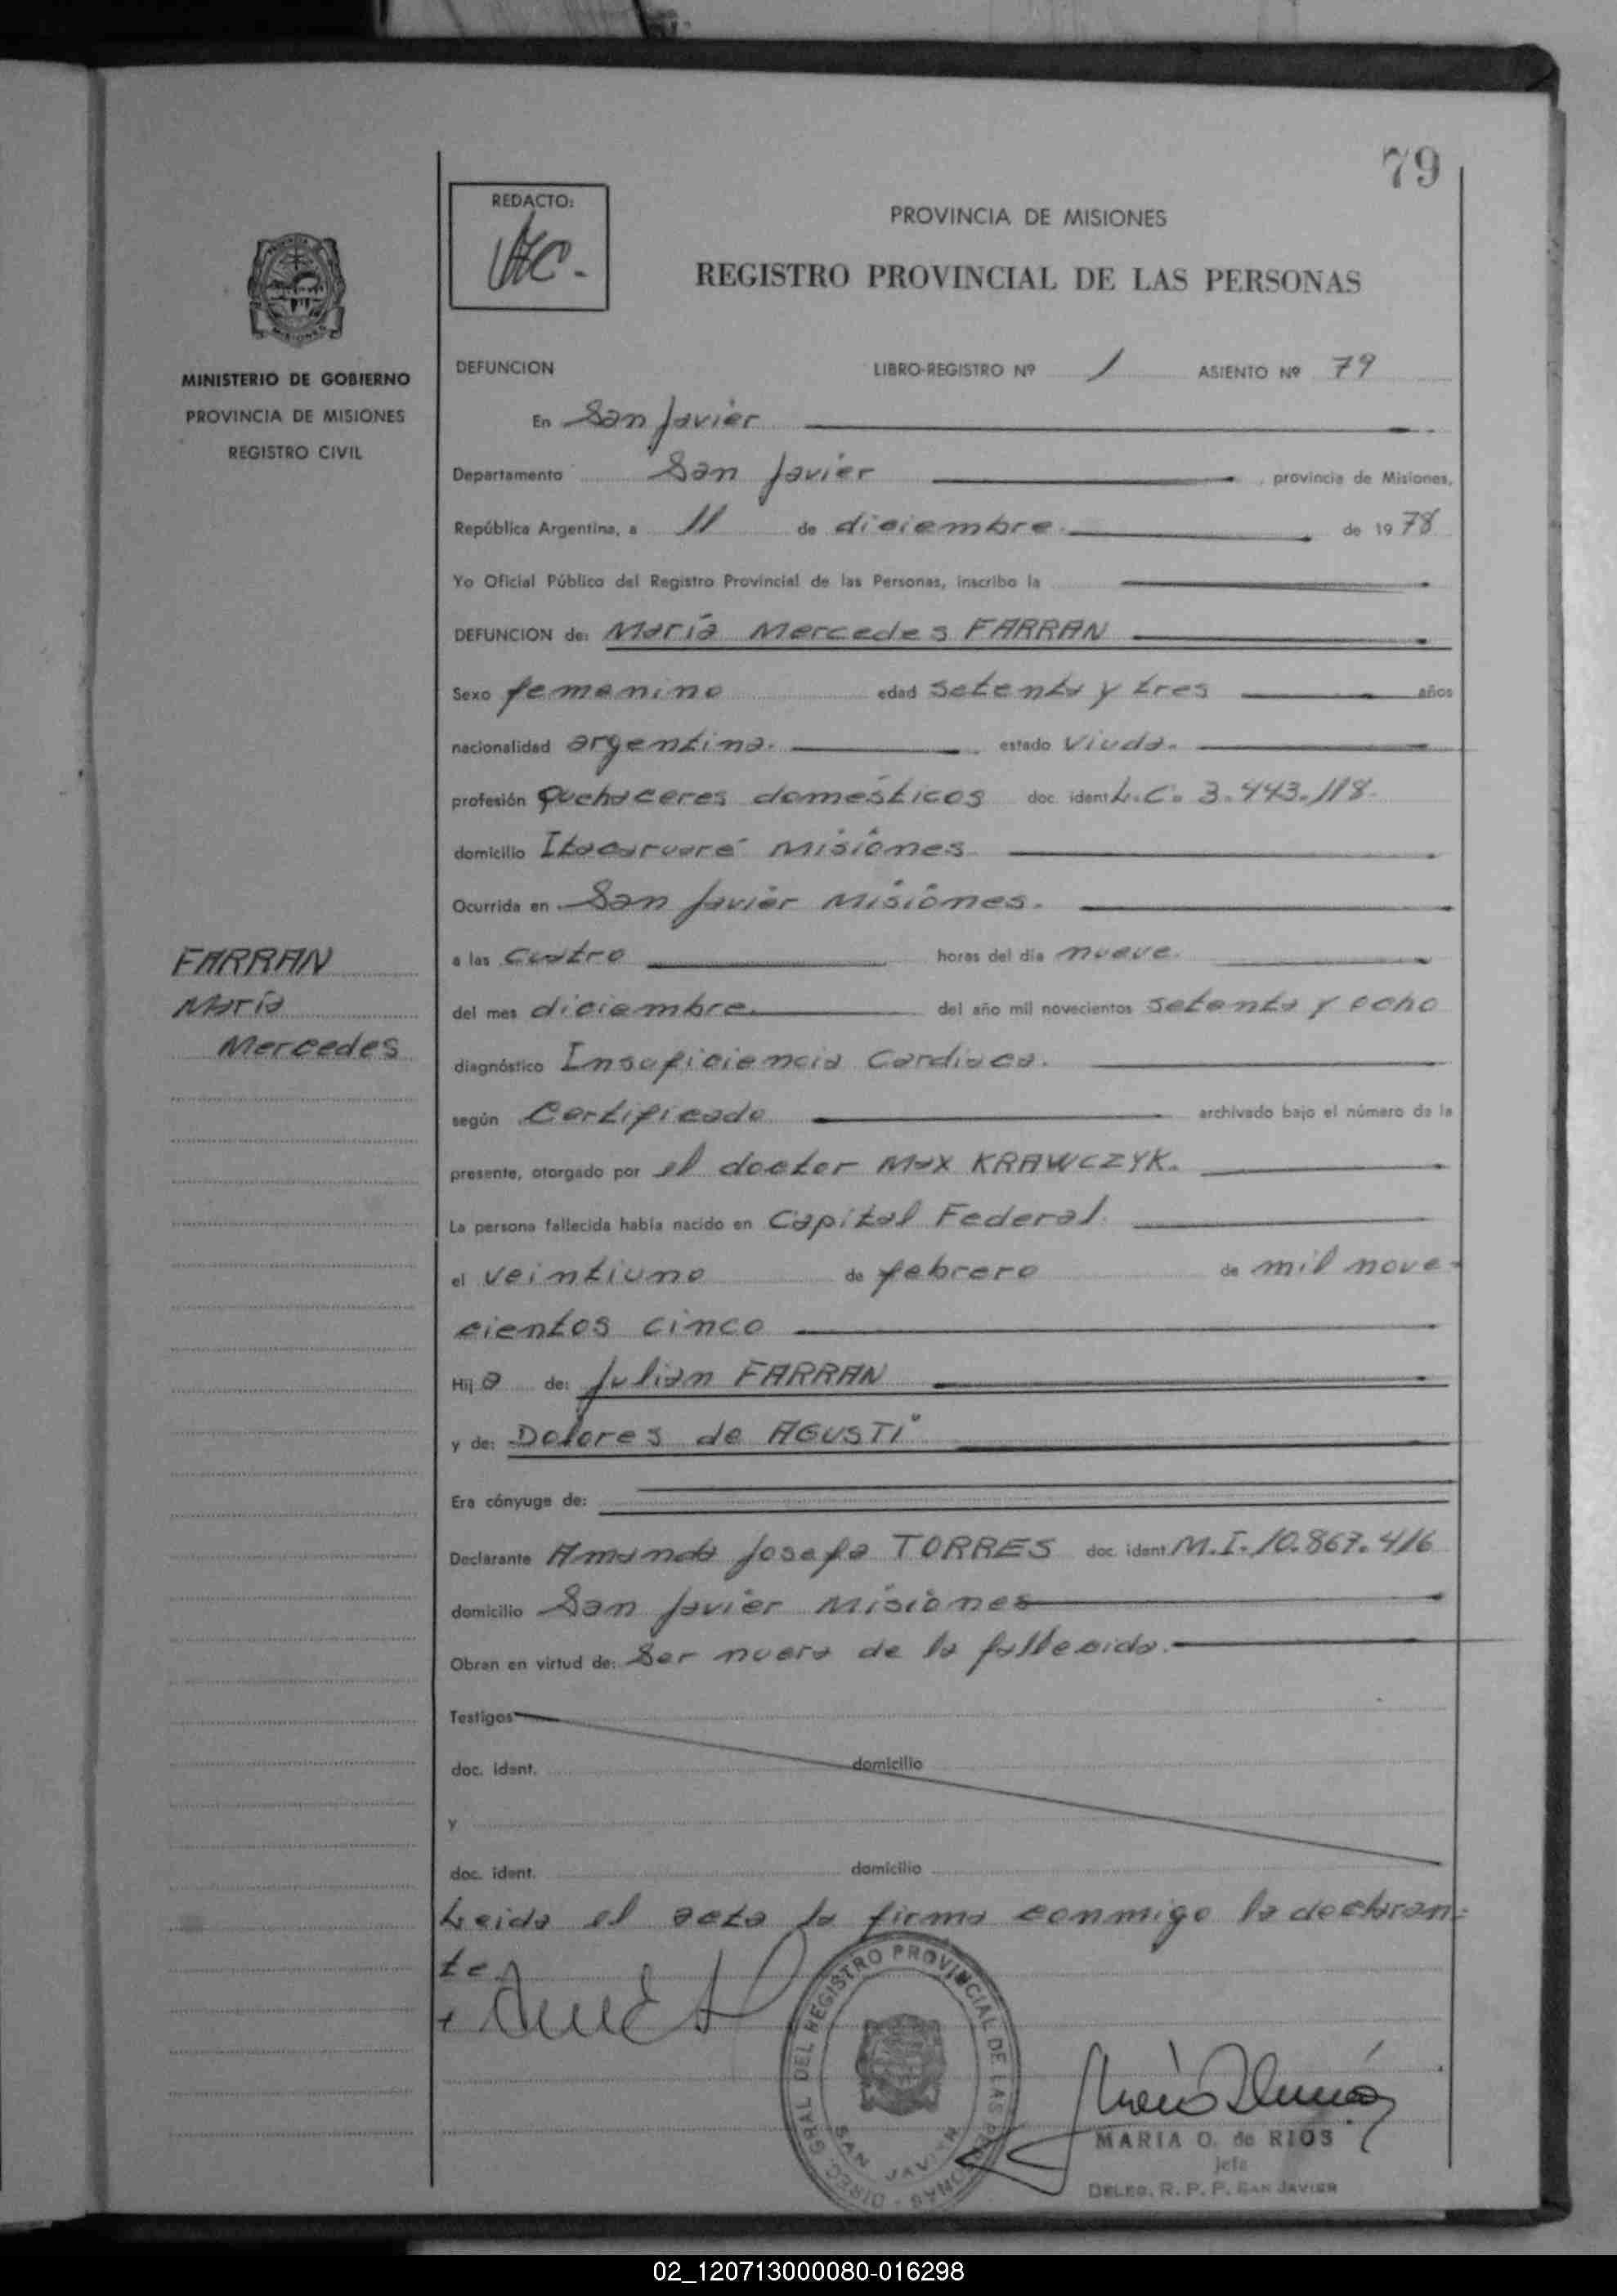 79
REDACTO:
PROVINCIA DE MISIONES
REGISTRO PROVINCIAL DE LAS PERSONAS
MINISTERIO DE GOBIERNO
PROVINCIA DE MISIONES
REGISTRO CIVIL
DEFUNCION LIBRO-REGISTRO Nº 1 ASIENTO Nº 79
En San Javier
Departamento San Javier, provincia de Misiones,
República Argentina, a 11 de diciembre de 1978
Yo Oficial Público del Registro Provincial de las Personas, inscribo la
DEFUNCION de: María Mercedes FARRAN
Sexo femenino edad setenta y tres años
nacionalidad argentina. estado viuda.
profesión Quehaceres domésticos doc. ident. L.C. 3.443.118.
domicilio Itacaruaré Misiones
Ocurrida en San Javier Misiones.
a las cuatro horas del día nueve.
FARRAN
María
Mercedes
del mes diciembre. del año mil novecientos setenta y ocho
diagnóstico Insuficiencia Cardiaca.
según Certificado archivado bajo el número de la
presente, otorgado por el doctor Max KRAWCZYK.
La persona fallecida había nacido en Capital Federal.
el veintiuno de febrero de mil nove-
cientos cinco
Hija de: Julian FARRAN
y de: Dolores de AGUSTI
Era cónyuge de:
Declarante Amanda Josefa TORRES doc. ident. M.I. 10.867.416
domicilio San Javier Misiones
Obran en virtud de: Ser nuera de la fallecida.
Testigos
doc. ident. domicilio
y
doc. ident. domicilio
Leida el acta la firma conmigo la declaran-
te.
DIREC. GRAL. DEL REGISTRO PROVINCIAL DE LAS PERSONAS - SAN JAVIER
MARIA O. de RIOS
Jefa
DELEG. R. P. P. SAN JAVIER
02_120713000080-016298